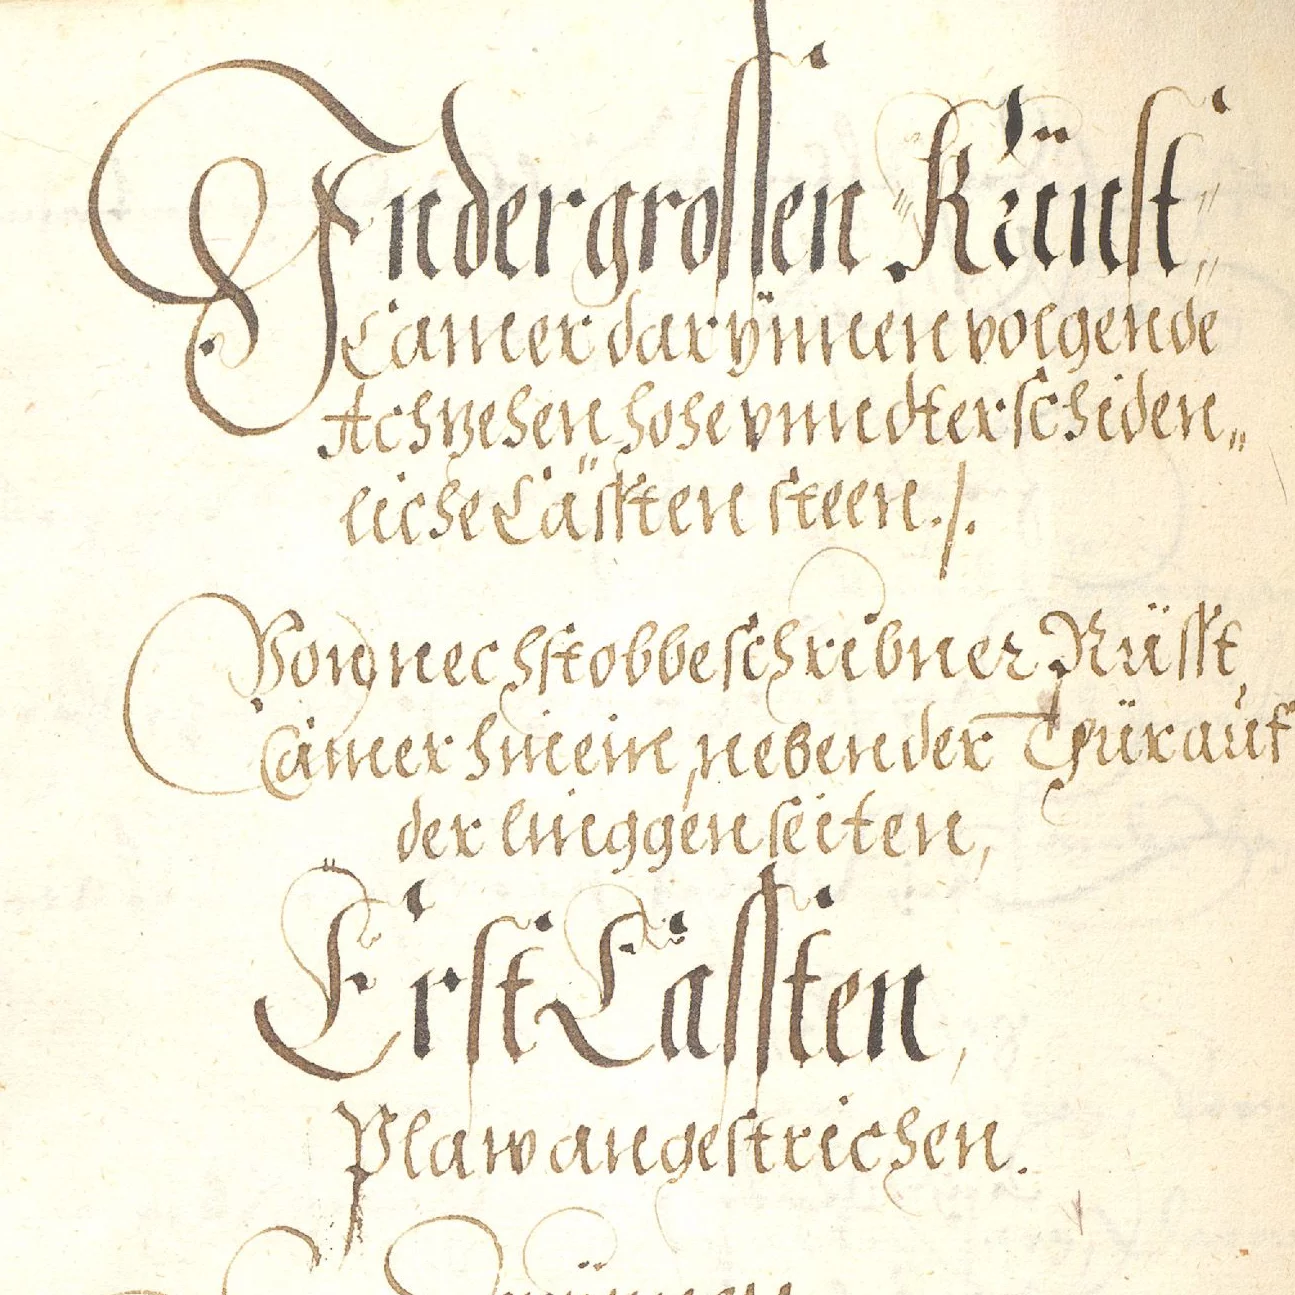 In der grossen Künst„
Camer darÿnnen volgende
Achzehen hohe vnnd terschiden„
liche Cässten steen./.
Von nechst obbeschribner Rüsst,
Camer hinein, neben der Thür auf
der linggen seiten,
Erst Cassten,
Plaw angestrichen.